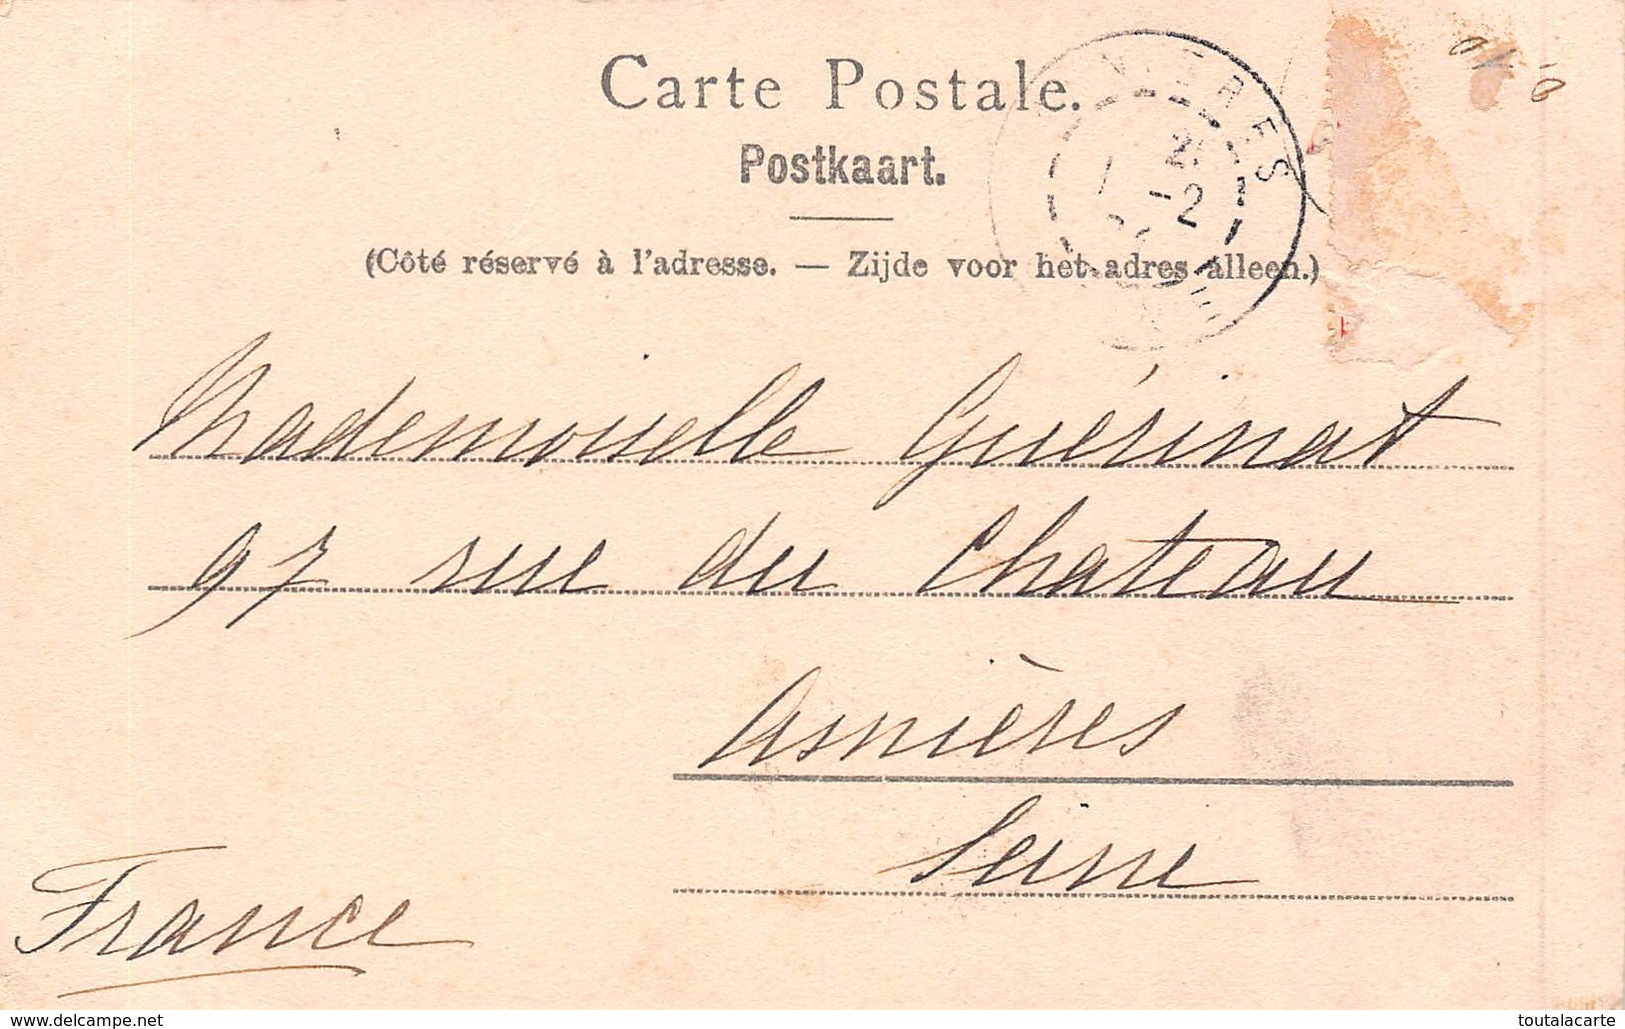 Carte Postale.
Postkaart.
(Côté réservé à l'adresse. — Zijde voor het adres alleen.)
Mademoiselle Guérinat
97 rue du Chateau
Asnières
Seine
France
www.delcampe.net
toutalacarte